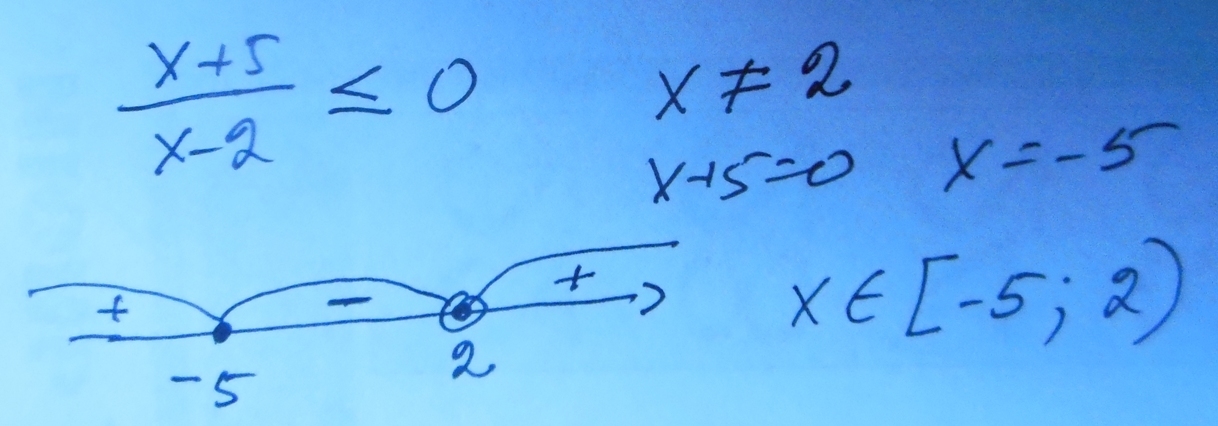 x+5
─── ≤ 0   x ≠ 2
x-2
x+5=0   x=-5
+ - +
-5 2
x∈[-5; 2)